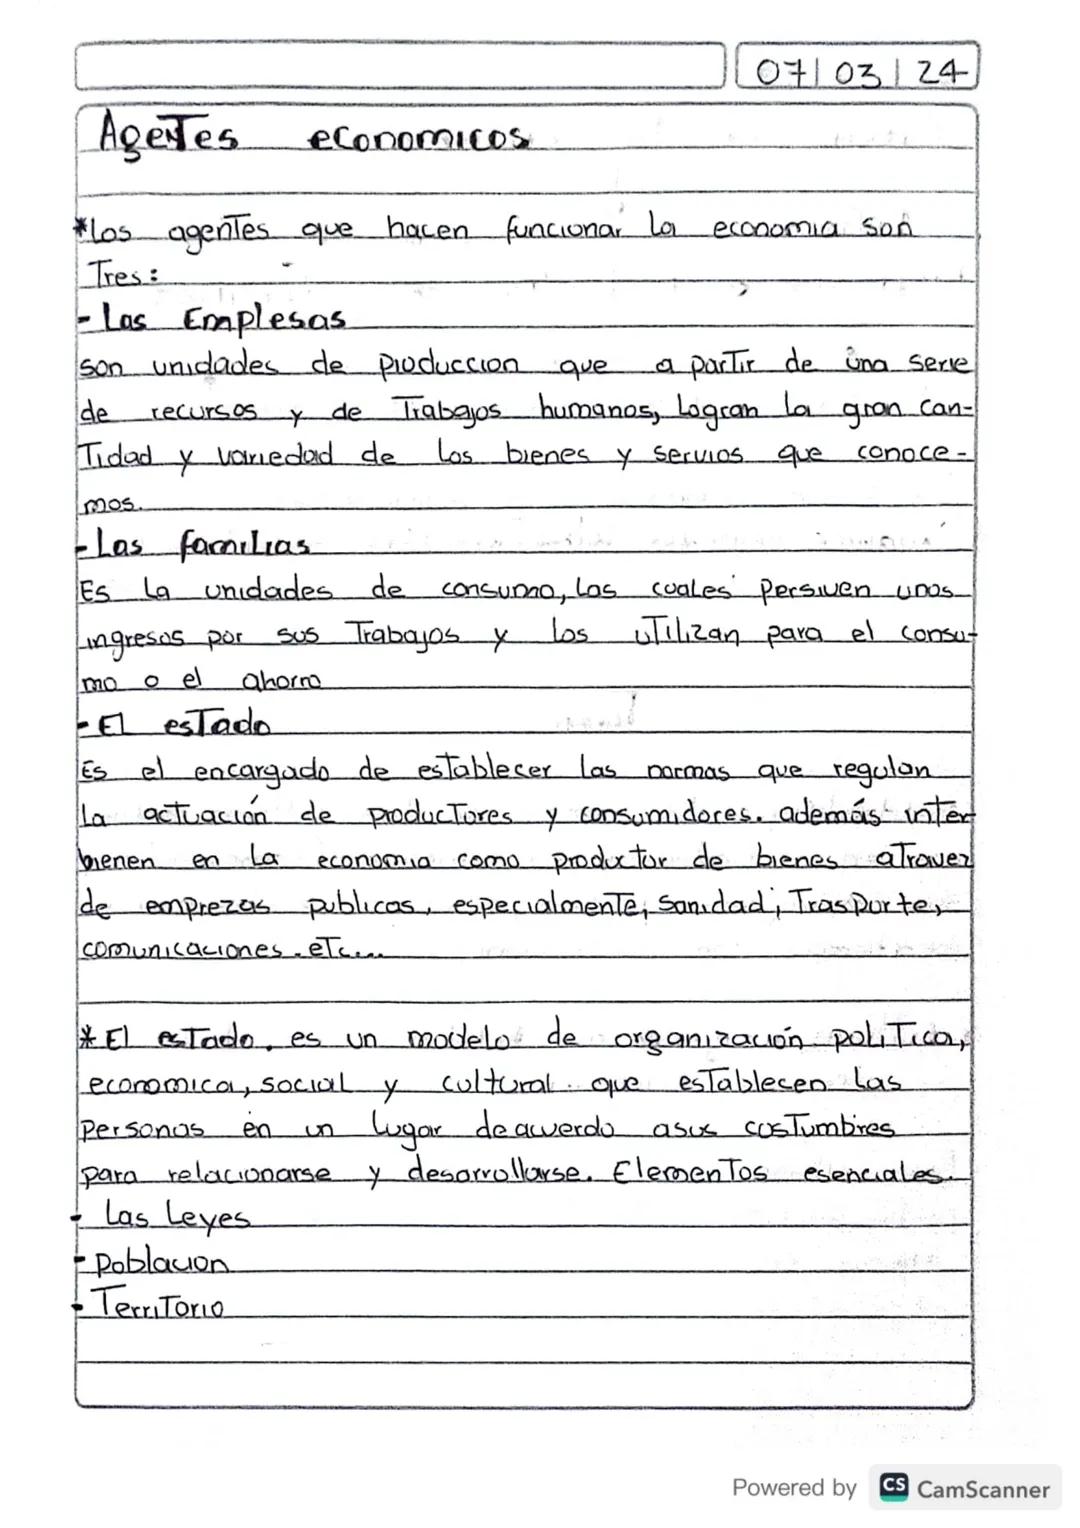 07/03/24
Agentes economicos
*Los agentes que hacen funcionar la economia son
Tres:
- Las Empresas
son unidades de produccion que a partir de una serie
de recursos y de Trabajos humanos, Logran La gran can-
Tidad y variedad de Los bienes y servios que conoce-
mos.
- Las familias
Es La unidades de consumo, Las cuales persiven unos
ingresos por sus Trabajos y los utilizan para el consu-
mo o el ahorro
- El estado
Es el encargado de establecer las normas que regulan
La actuación de productores y consumidores. además inter
bienen en La economia como productor de bienes atravez
de emprezas publicas, especialmente, sanidad, Trasporte,
comunicaciones. etc....
* El estado. es un modelo de organización politica,
economica, social y cultural. que establecen Las
personas en un lugar de acuerdo asus costumbres
para relacionarse y desarrollarse. Elementos esenciales.
- Las Leyes
- Poblacion
- Territorio
Powered by CS CamScanner